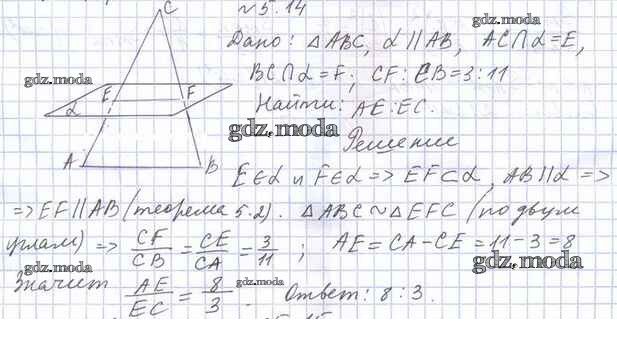 C
№ 5.14
gdz.moda
Дано: △ABC, α∥AB, AC∩α=E,
BC∩α=F; CF:CB=3:11
gdz.moda
E F
α
Найти: AE:EC.
gdz.moda
Решение
A B
E∈α и F∈α => EF⊂α, AB∥α =>
=> EF∥AB (теорема 5.2). △ABC ~ △EFC (по двум
углам) => CF/CB = CE/CA = 3/11 ; AE = CA-CE = 11-3 = 8
gdz.moda
gdz.moda
Значит AE/EC = 8/3. Ответ: 8:3.
gdz.moda